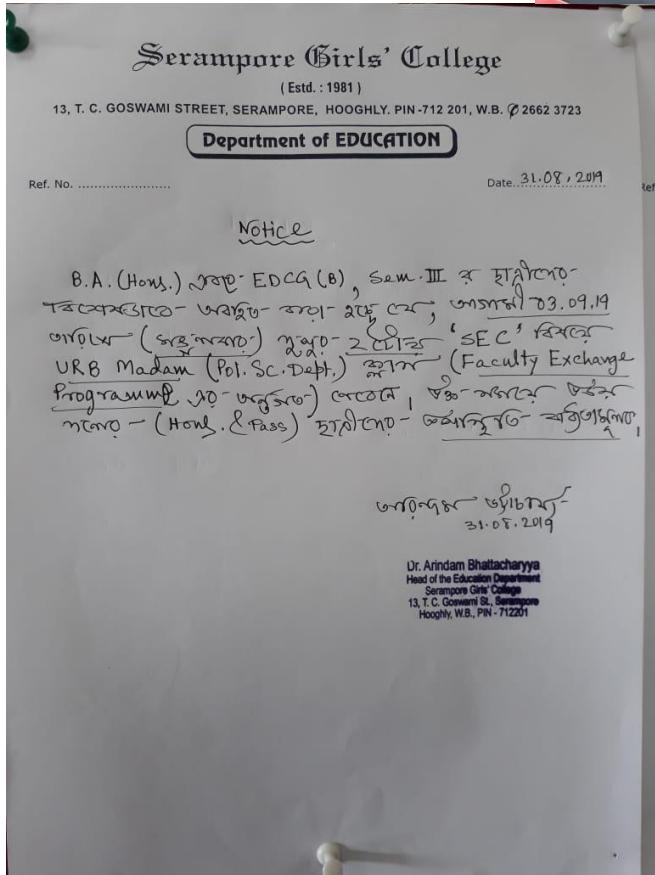 Serampore Girls' College
( Estd. : 1981 )
13, T. C. GOSWAMI STREET, SERAMPORE, HOOGHLY. PIN -712 201, W.B. ✆ 2662 3723
Department of EDUCATION
Ref. No. ........................
Date. 31.08.2019
Ref
Notice
B.A. (Hons.) এবং EDCG (B), Sem. III র ছাত্রীদের
বিশেষভাবে অবহিত করা হচ্ছে যে, আগামী 03.09.19
তারিখে (মঙ্গলবার) দুপুর ২টোয় 'SEC' বিষয়ে
URB Madam (Pol. Sc. Dept.) ক্লাস (Faculty Exchange
Programme এর অন্তর্গত) নেবেন। উক্ত সময়ে উভয়
দলের - (Hons. & Pass) ছাত্রীদের উপস্থিতি বাধ্যতামূলক।
অরিন্দম ভট্টাচার্য্য
31.08.2019
Dr. Arindam Bhattacharyya
Head of the Education Department
Serampore Girls' College
13, T. C. Goswami St., Serampore
Hooghly, W.B., PIN - 712201